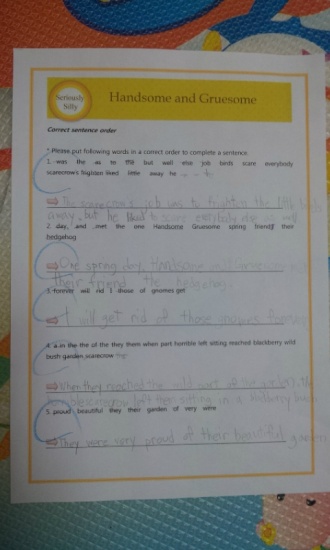 Seriously
Silly
Handsome and Gruesome
Correct sentence order
* Please put following words in a correct order to complete a sentence.
1. was the as to the but well else job birds scare everybody
scarecrow's frighten liked little away he
The scarecrow's job was to frighten the little birds
away, but he liked to scare everybody else as well
2. day, and met the one Handsome Gruesome spring friend their
hedgehog
One spring day, Handsome and Gruesome met
their friend the hedgehog
3. forever will rid I those of gnomes get
I will get rid of those gnomes forever
4. a in the the of the they them when part horrible left sitting reached blackberry wild
bush garden scarecrow
When they reached the wild part of the garden, the
scarecrow left them sitting in a blackberry bush
5. proud beautiful they their garden of very were
They were very proud of their beautiful garden